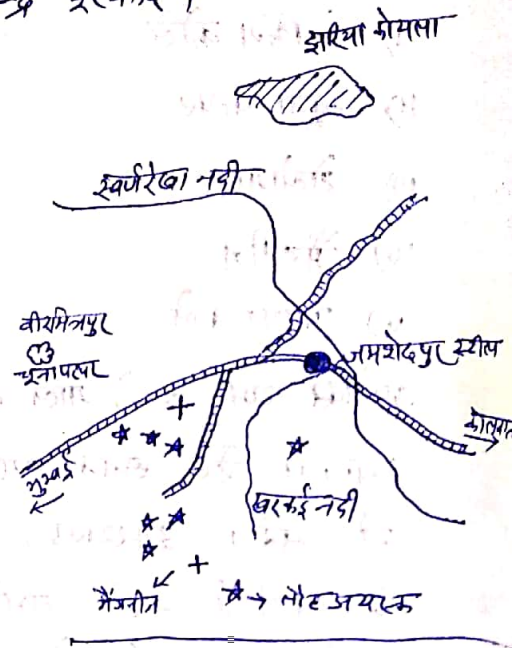 झरिया कोयला
स्वर्णरेखा नदी
वीरमित्रपुर
चूना पत्थर
जमशेदपुर स्टील
मुम्बई
खरकई नदी
मैंगनीज
→ लौह अयस्क